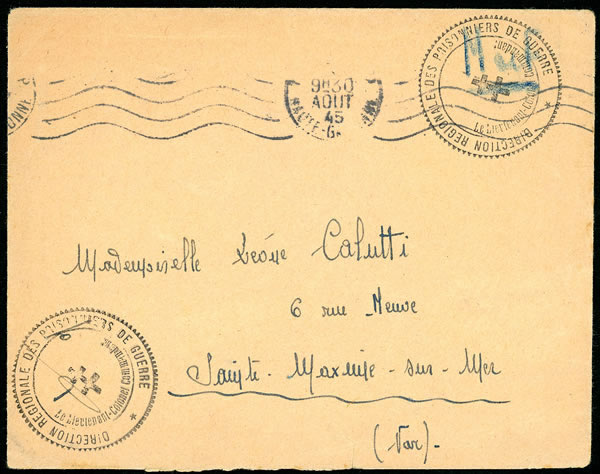 9H30
AOUT
45
HAUTE-G
DIRECTION REGIONALE DES PRISONNIERS DE GUERRE
Le Lieutenant-Colonel Commandant
Mademoiselle Léone Calutti
6 rue Neuve
Sainte-Maxime-sur-Mer
(Var).
DIRECTION REGIONALE DES PRISONNIERS DE GUERRE
Le Lieutenant-Colonel Commandant